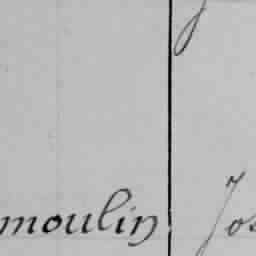 moulin Jos